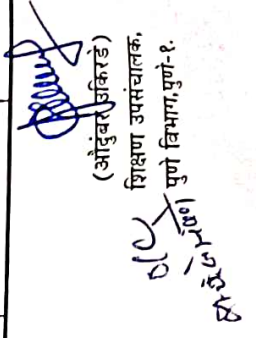 (औदुंबर उकिरडे)
शिक्षण उपसंचालक,
पुणे विभाग, पुणे-१.